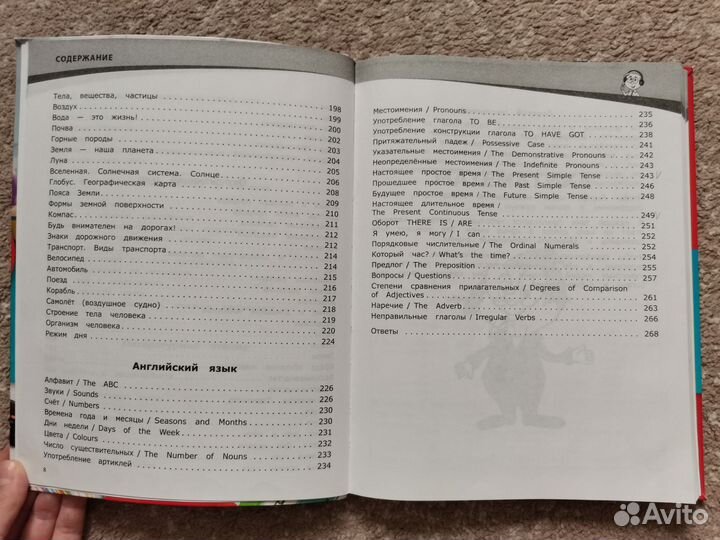 СОДЕРЖАНИЕ
Тела, вещества, частицы 198
Воздух 199
Вода — это жизнь! 200
Почва 202
Горные породы 203
Земля — наша планета 204
Луна 205
Вселенная. Солнечная система. Солнце 206
Глобус. Географическая карта 208
Пояса Земли 209
Формы земной поверхности 210
Компас 211
Будь внимателен на дорогах! 212
Знаки дорожного движения 214
Транспорт. Виды транспорта 214
Велосипед 215
Автомобиль 216
Поезд 217
Корабль 218
Самолёт (воздушное судно) 218
Строение тела человека 219
Организм человека 220
Режим дня 224
Английский язык
Алфавит / The ABC 226
Звуки / Sounds 226
Счёт / Numbers 230
Времена года и месяцы / Seasons and Months 230
Дни недели / Days of the Week 231
Цвета / Colours 232
Число существительных / The Number of Nouns 233
Употребление артиклей 234
8
Местоимения / Pronouns 235
Употребление глагола TO BE 236
Употребление конструкции глагола TO HAVE GOT 238
Притяжательный падеж / Possessive Case 241
Указательные местоимения / The Demonstrative Pronouns 242
Неопределённые местоимения / The Indefinite Pronouns 243
Настоящее простое время / The Present Simple Tense 243
Прошедшее простое время / The Past Simple Tense 246
Будущее простое время / The Future Simple Tense 248
Настоящее длительное время /
The Present Continuous Tense 249
Оборот THERE IS / ARE 251
Я умею, я могу / I can 252
Порядковые числительные / The Ordinal Numerals 252
Который час? / What's the time? 254
Предлог / The Preposition 255
Вопросы / Questions 257
Степени сравнения прилагательных / Degrees of Comparison
of Adjectives 261
Наречие / The Adverb 263
Неправильные глаголы / Irregular Verbs 266
Ответы 268
Avito